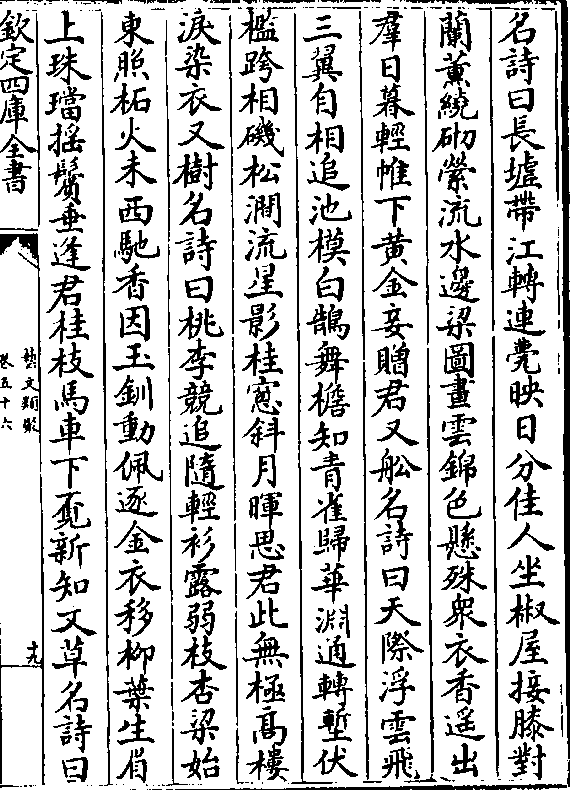 名詩曰長墟帶江轉連甍映日分佳人坐椒屋接膝對
蘭薰繞砌縈流水邊梁圖畫雲錦色懸殊衆衣香遥出
羣日暮輕帷下黄金妾贈君又船名詩曰天際浮雲飛
三翼自相追池模白鵠舞檐知青雀歸華淵通轉塹伏
檻跨相磯松澗流星影桂窻斜月暉思君此無極髙樓
淚染衣又樹名詩曰桃李競追隨輕衫露弱枝杏梁始
東照柘火未西馳香因玉釧動佩逐金衣移柳葉生眉
上珠璫摇鬢垂逢君桂枝馬車下覔新知又草名詩曰
欽定四庫全書
藝文類聚
卷五十六
十九